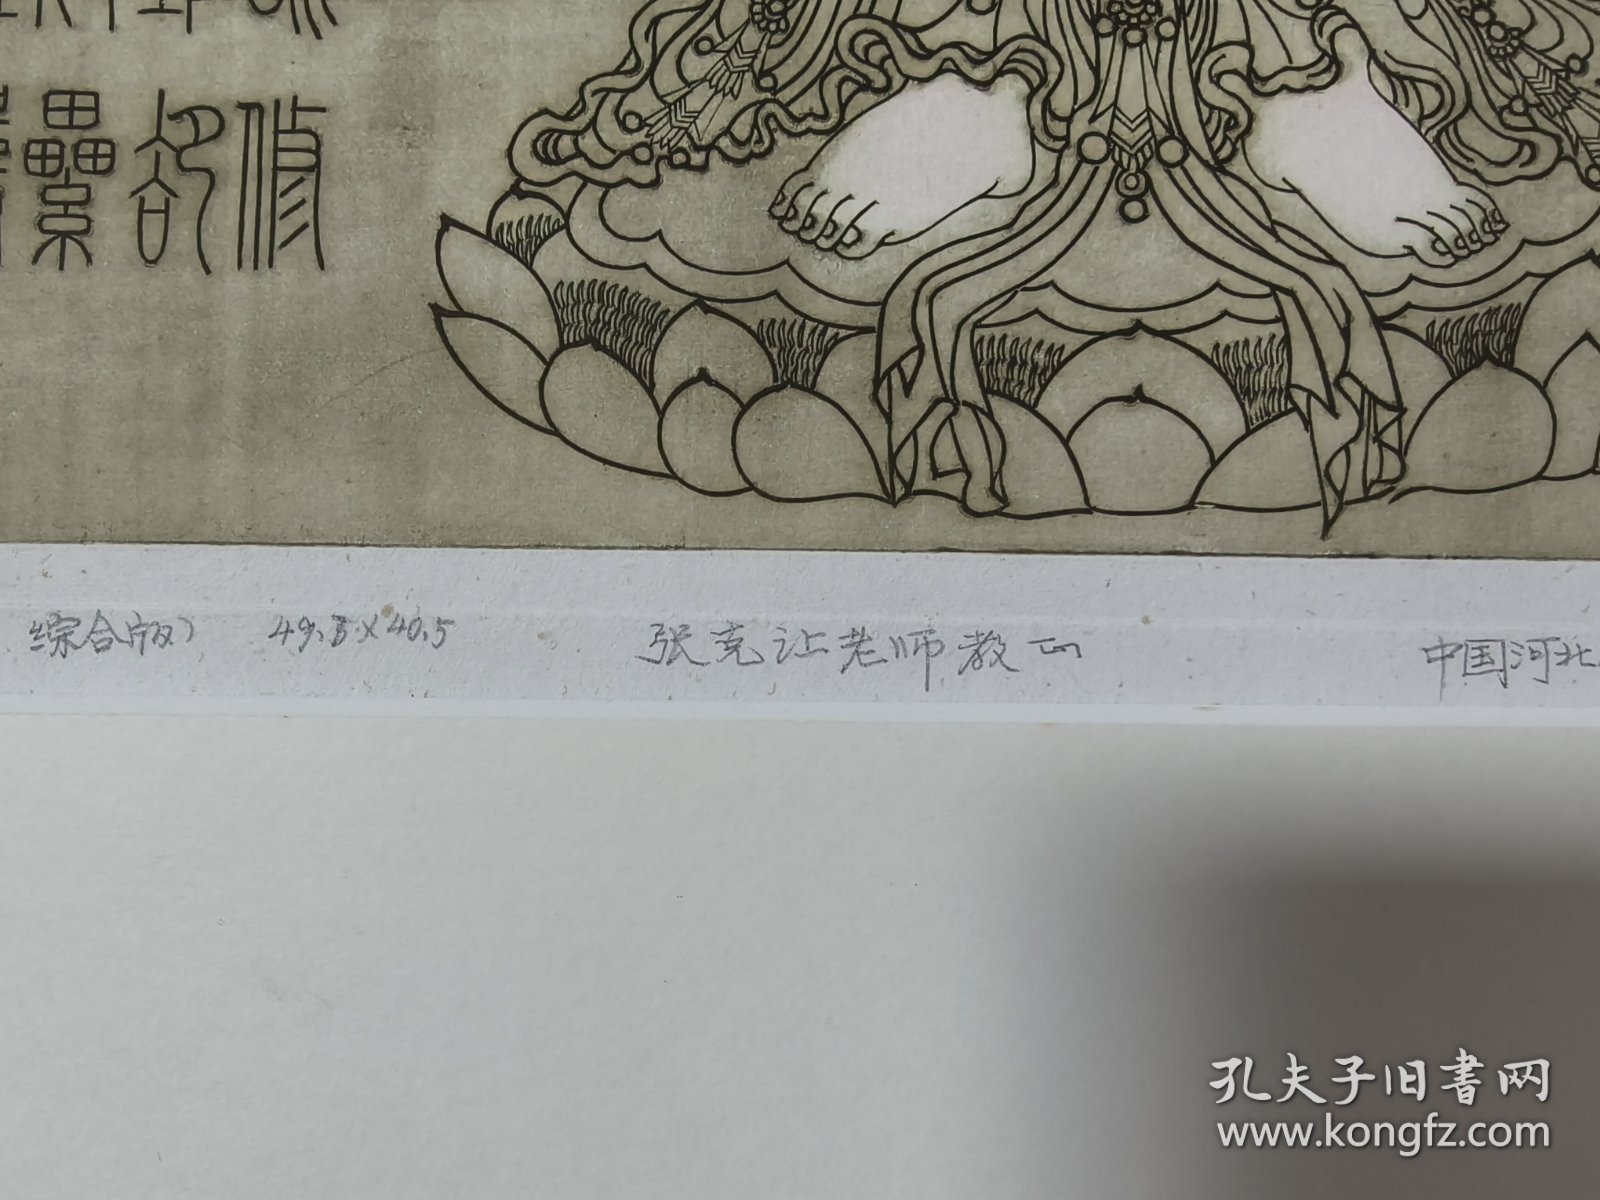 修劫累
综合版） 49.5×40.5 张克让老师教正 中国河北
孔夫子旧书网
www.kongfz.com